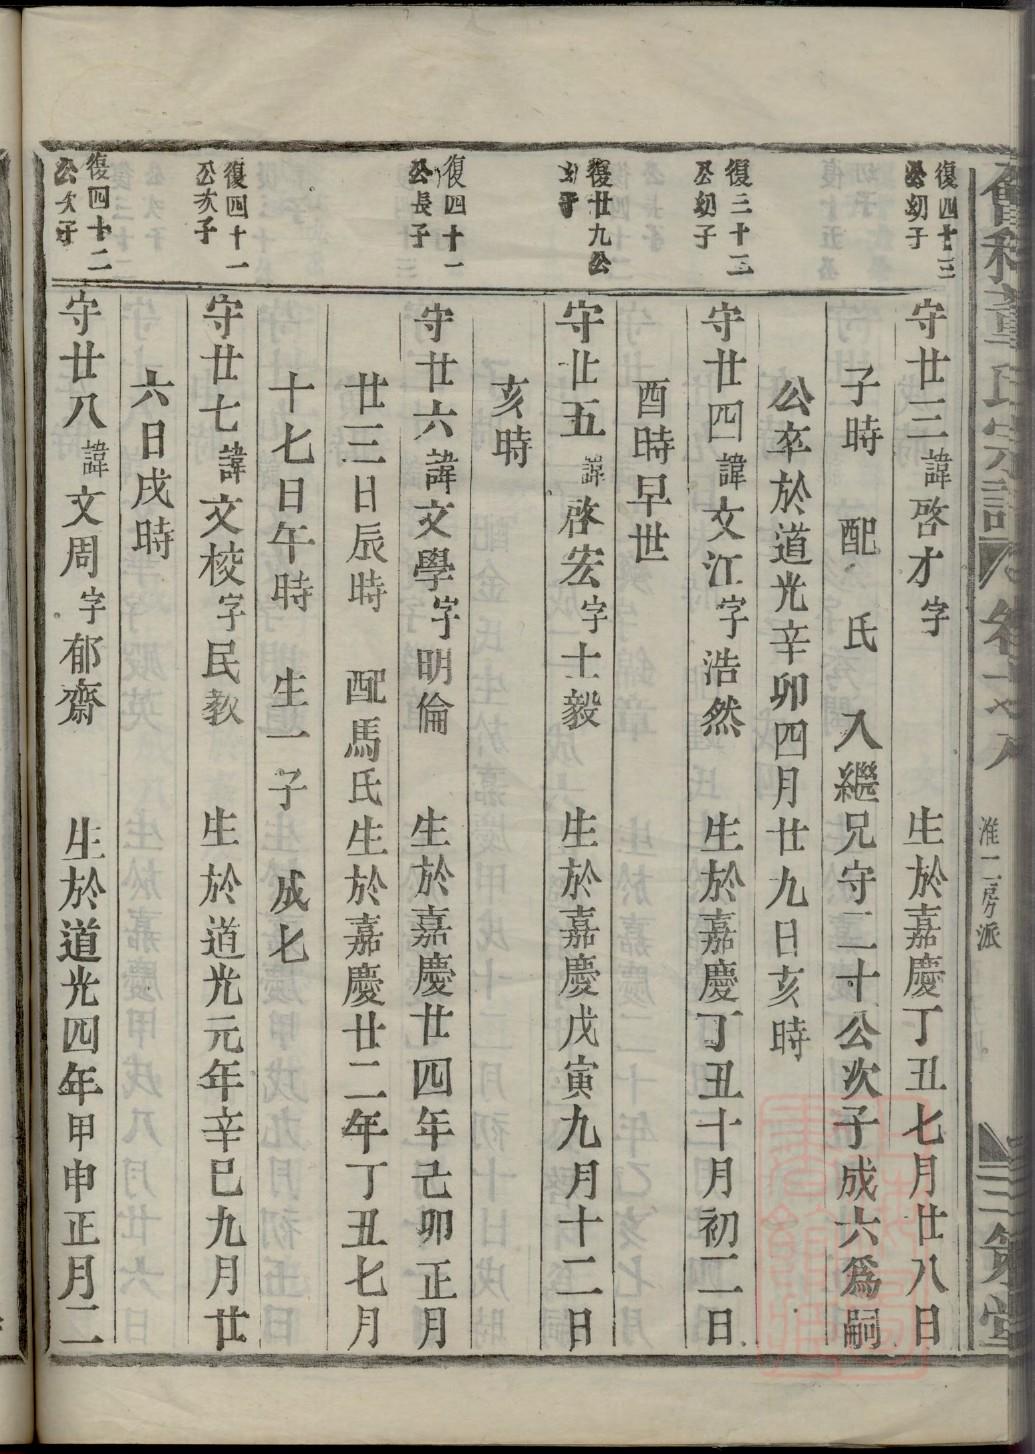 淮二房派
三策堂
復四十三公幼子
守廿三諱啓才字 生於嘉慶丁丑七月廿八日
子時 配 氏 入繼兄守二十公次子成六爲嗣
公卒於道光辛卯四月廿九日亥時
復三十三公幼子
守廿四諱文江字浩然 生於嘉慶丁丑十月初二日
酉時早世
復廿九公
守廿五諱啓宏字士毅 生於嘉慶戊寅九月十二日
亥時
復四十一公長子
守廿六諱文學字明倫 生於嘉慶廿四年己卯正月
廿三日辰時 配馬氏生於嘉慶廿二年丁丑七月
十七日午時 生一子 成七
復四十一公次子
守廿七諱文校字民教 生於道光元年辛巳九月廿
六日戌時
復四十二公次子
守廿八諱文周字郁齋 生於道光四年甲申正月二